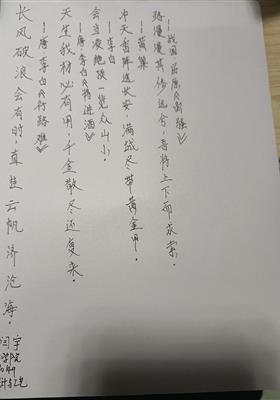 长风破浪会有时，直挂云帆济沧海。
——唐·李白《行路难》
天生我材必有用，千金散尽还复来。
——唐·李白《将进酒》
会当凌绝顶，一览众山小。
——李白
冲天香阵透长安，满城尽带黄金甲。
——黄巢
路漫漫其修远兮，吾将上下而求索。
——战国·屈原《离骚》
闫宇
学院